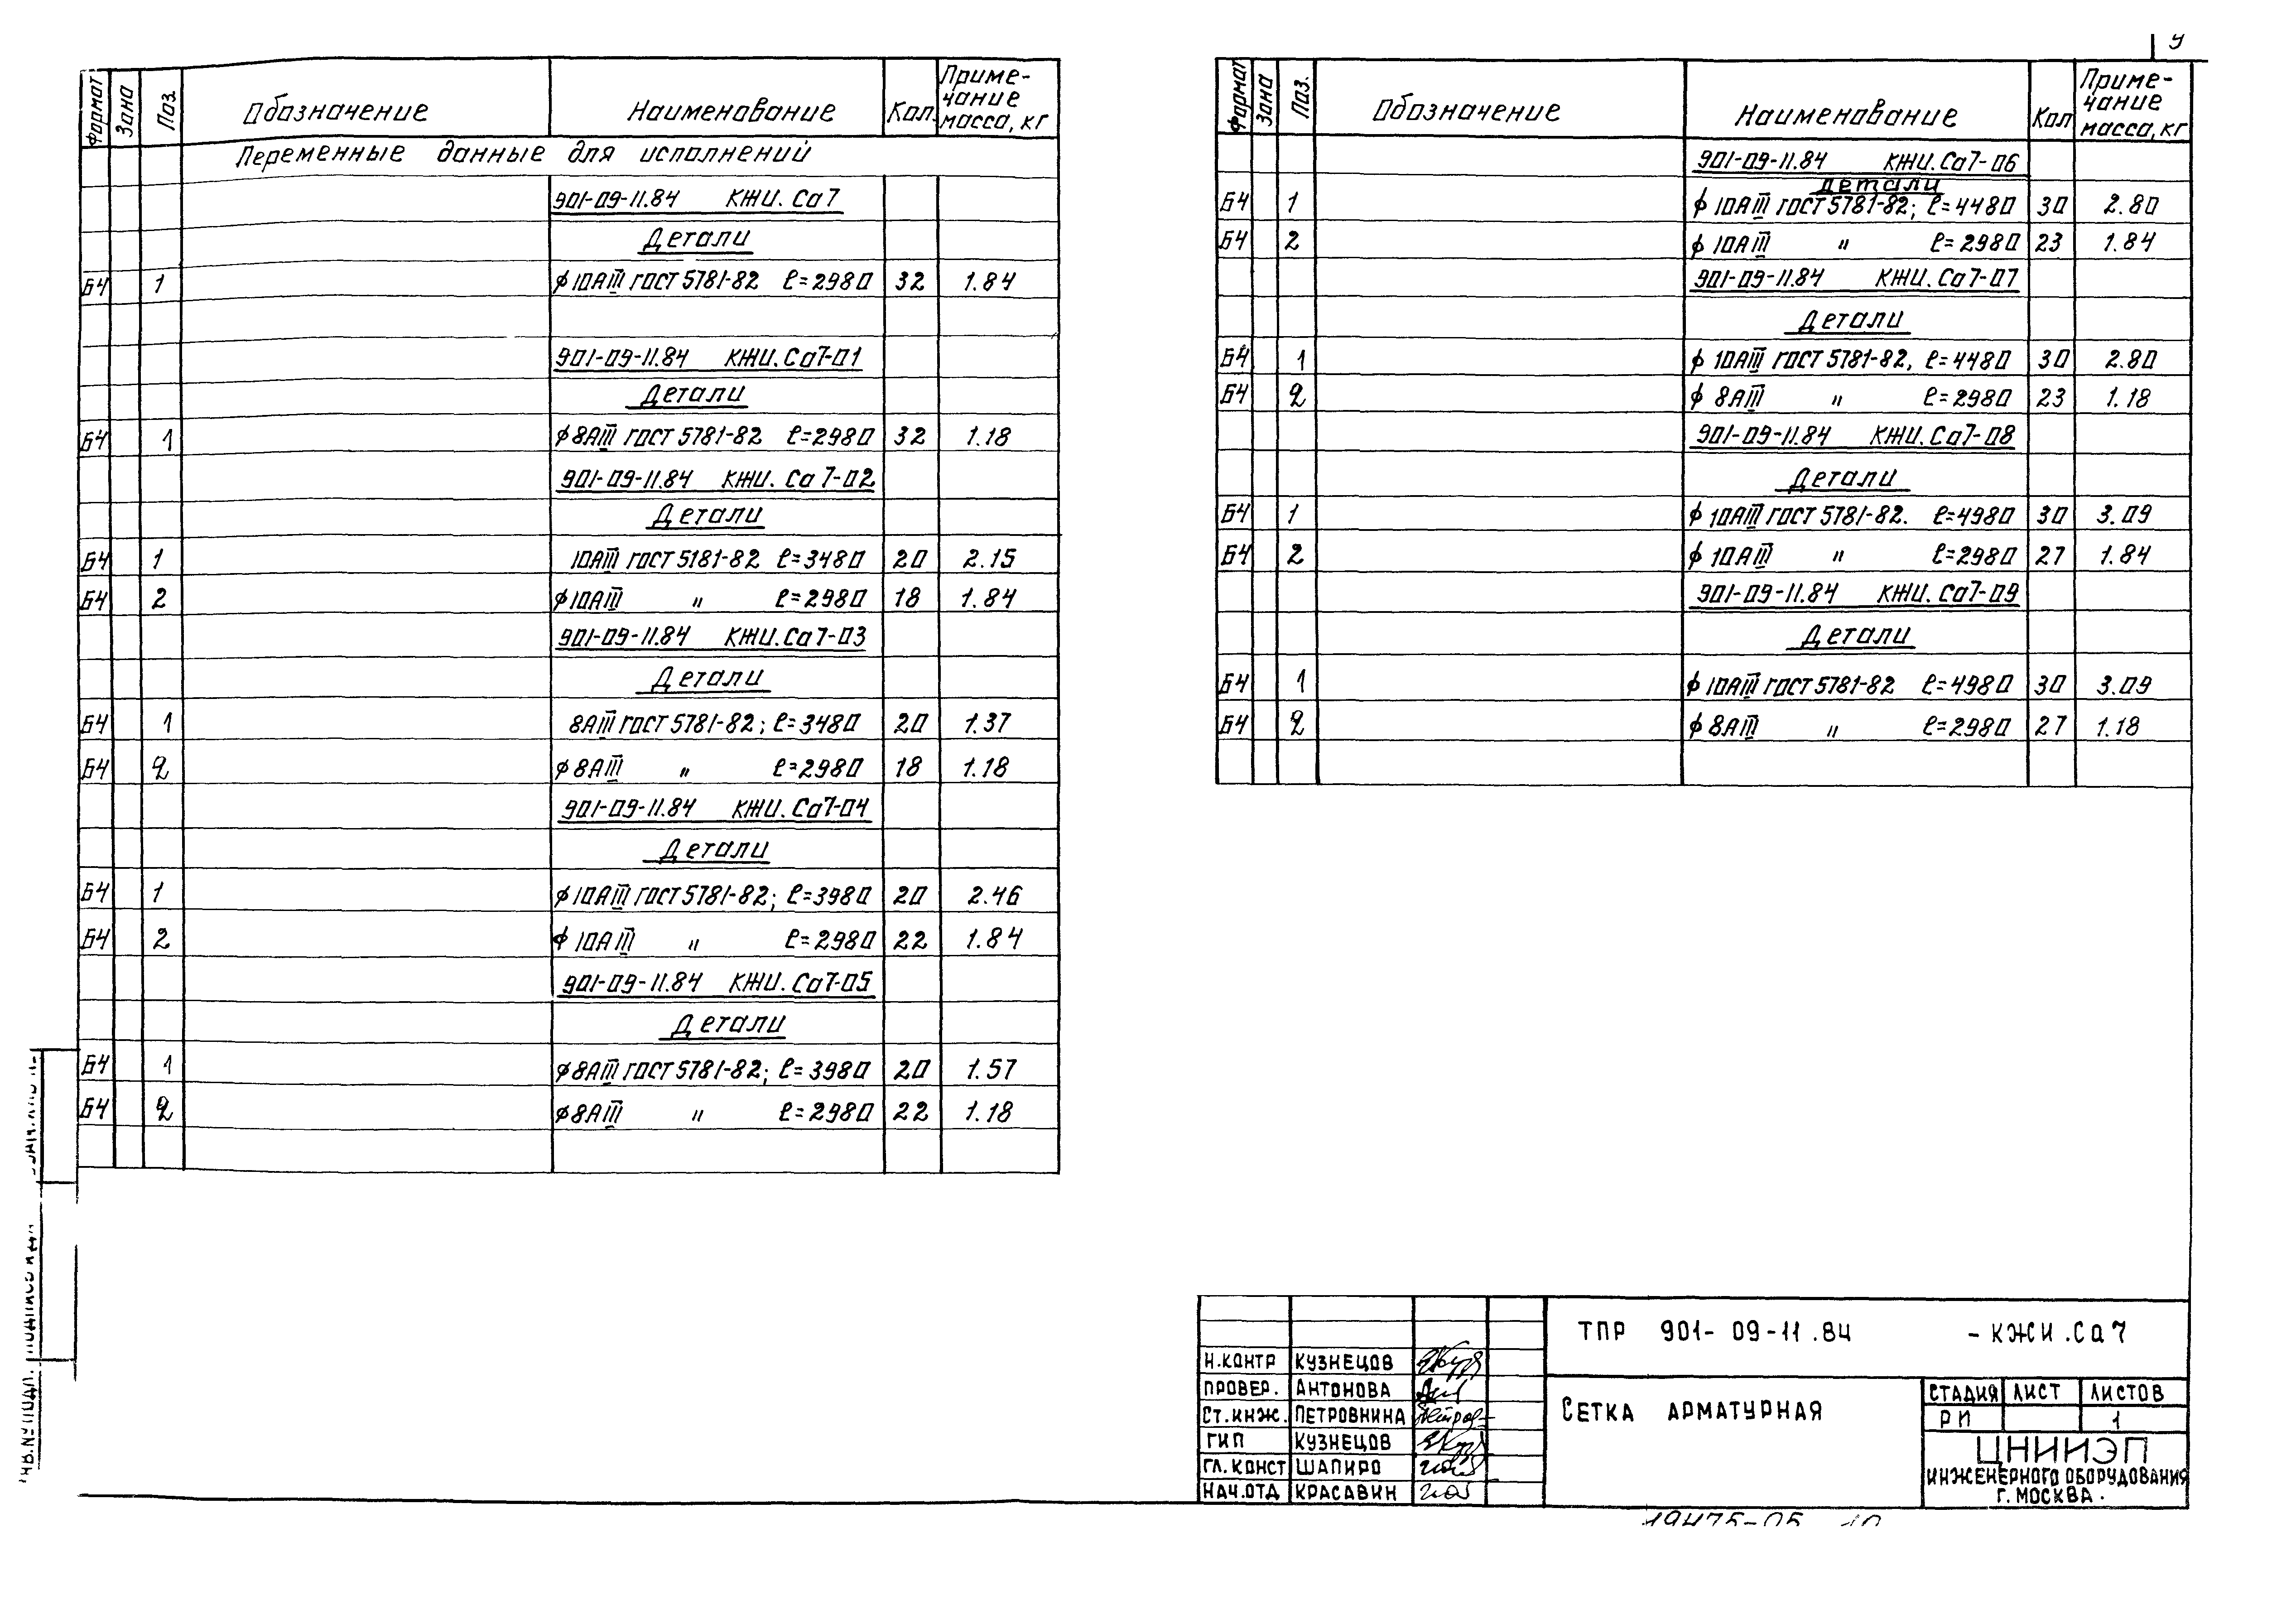 9
Формат Зона Поз. Обозначение Наименование Кол. Приме-
чание
масса, кг
Переменные данные для исполнений
901-09-11.84 КЖИ.Са7
Детали
Б4 1 ϕ10АIII ГОСТ 5781-82 ℓ=2980 32 1.84
901-09-11.84 КЖИ.Са7-01
Детали
Б4 1 ϕ8АIII ГОСТ 5781-82 ℓ=2980 32 1.18
901-09-11.84 КЖИ.Са7-02
Детали
Б4 1 10АIII ГОСТ 5181-82 ℓ=3480 20 2.15
Б4 2 ϕ10АIII " ℓ=2980 18 1.84
901-09-11.84 КЖИ.Са7-03
Детали
Б4 1 8АIII ГОСТ 5781-82; ℓ=3480 20 1.37
Б4 2 ϕ8АIII " ℓ=2980 18 1.18
901-09-11.84 КЖИ.Са7-04
Детали
Б4 1 ϕ10АIII ГОСТ 5781-82; ℓ=3980 20 2.46
Б4 2 ϕ10АIII " ℓ=2980 22 1.84
901-09-11.84 КЖИ.Са7-05
Детали
Б4 1 ϕ8АIII ГОСТ 5781-82; ℓ=3980 20 1.57
Б4 2 ϕ8АIII " ℓ=2980 22 1.18
Формат Зона Поз. Обозначение Наименование Кол Приме-
чание
масса, кг
901-09-11.84 КЖИ.Са7-06
Детали
Б4 1 ϕ10АIII ГОСТ 5781-82; ℓ=4480 30 2.80
Б4 2 ϕ10АIII " ℓ=2980 23 1.84
901-09-11.84 КЖИ.Са7-07
Детали
Б4 1 ϕ10АIII ГОСТ 5781-82, ℓ=4480 30 2.80
Б4 2 ϕ8АIII " ℓ=2980 23 1.18
901-09-11.84 КЖИ.Са7-08
Детали
Б4 1 ϕ10АIII ГОСТ 5781-82. ℓ=4980 30 3.09
Б4 2 ϕ10АIII " ℓ=2980 27 1.84
901-09-11.84 КЖИ.Са7-09
Детали
Б4 1 ϕ10АIII ГОСТ 5781-82 ℓ=4980 30 3.09
Б4 2 ϕ8АIII " ℓ=2980 27 1.18
ТПР 901-09-11.84 -КЖИ.Са7
Н.КОНТР КУЗНЕЦОВ
ПРОВЕР. АНТОНОВА
СТ.ИНЖ. ПЕТРОВНИНА
ГИП КУЗНЕЦОВ
ГЛ.КОНСТ ШАПИРО
НАЧ.ОТД КРАСАВИН
СЕТКА АРМАТУРНАЯ
СТАДИЯ ЛИСТ ЛИСТОВ
РИ 1
ЦНИИЭП
ИНЖЕНЕРНОГО ОБОРУДОВАНИЯ
Г. МОСКВА.
19475-05 10